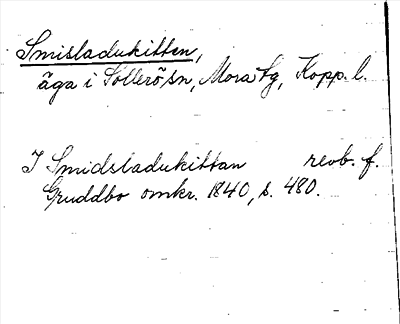 Smisladukitten,
äga i Sollerö sn, Mora tg, Kopp. l.
I Smidsladukittan revb. f.
Gruddbo omkr. 1840, s. 480.